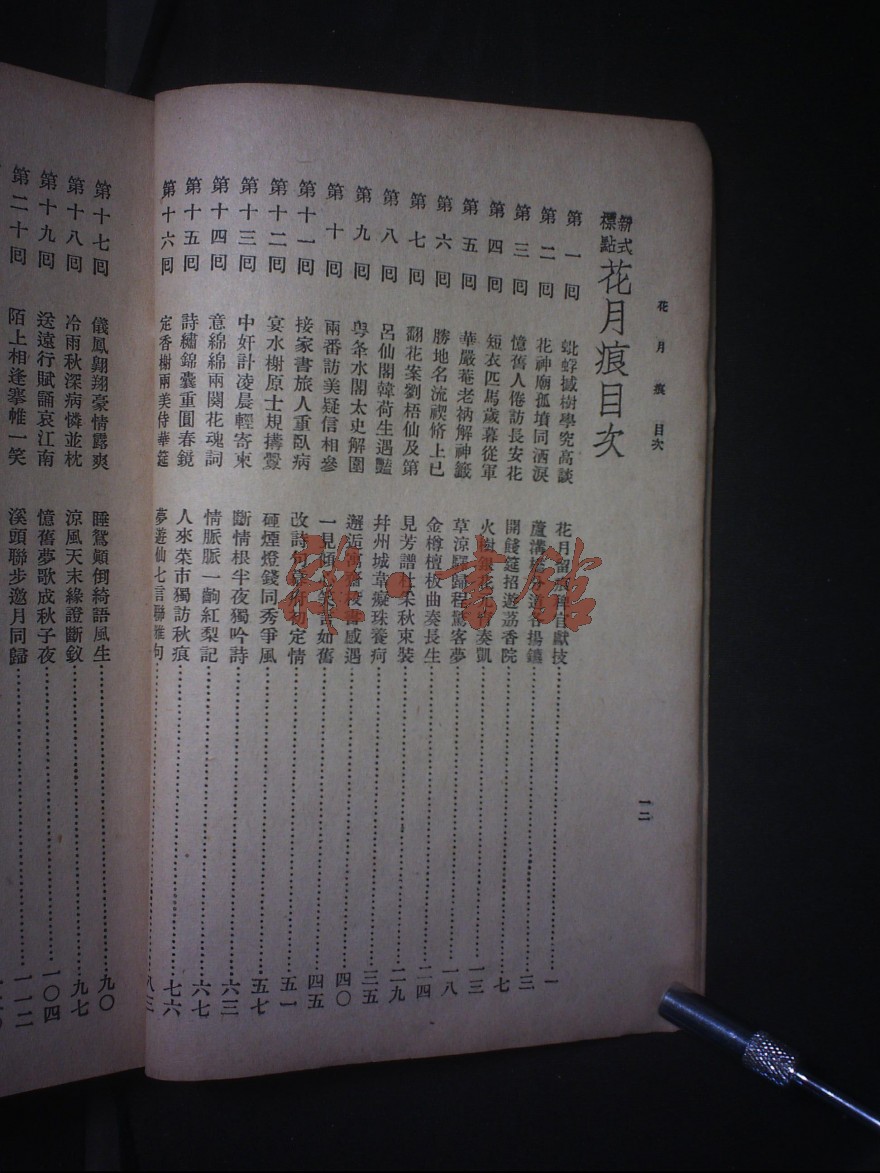 花月痕 目次
一二
新式標點 花月痕目次
第一回 蚍蜉撼樹學究高談 花月留痕稗官獻技 一
第二回 花神廟孤墳同洒淚 蘆溝橋分道各揚鑣 三
第三回 憶舊人倦訪長安花 開餞筵招遊荔香院 七
第四回 短衣匹馬歲暮從軍 火樹銀花元宵奏凱 一三
第五回 華嚴菴老衲解神籤 草涼驛歸程驚客夢 一八
第六回 勝地名流禊修上巳 金樽檀板曲奏長生 二四
第七回 翻花案劉梧仙及第 見芳譜杜采秋束裝 二九
第八回 呂仙閣韓荷生遇豔 幷州城韋癡珠養疴 三五
第九回 粤夆水閣太史解圍 邂逅寓齋校書感遇 四〇
第十回 兩番訪美疑信相參 一見傾心笑言如舊 四五
第十一回 接家書旅人重臥病 改詩句幕府初定情 五一
第十二回 宴水榭原士規搆釁 硾煙燈錢同秀爭風 五七
第十三回 中奸計凌晨輕寄柬 斷情根半夜獨吟詩 六三
第十四回 意綿綿兩闋花魂詞 情脈脈一齣紅梨記 六七
第十五回 詩繡錦囊重圓春鏡 人來菜市獨訪秋痕 七六
第十六回 定香榭兩美侍華筵 夢遊仙七言聯雅句 八三
第十七回 儀鳳翱翔豪情露爽 睡鴛顚倒綺語風生 九〇
第十八回 冷雨秋深病憐並枕 涼風天末緣證斷釵 九七
第十九回 送遠行賦誦哀江南 憶舊夢歌成秋子夜 一〇四
第二十回 陌上相逢搴帷一笑 溪頭聯步邀月同歸 一一二
雜·書館